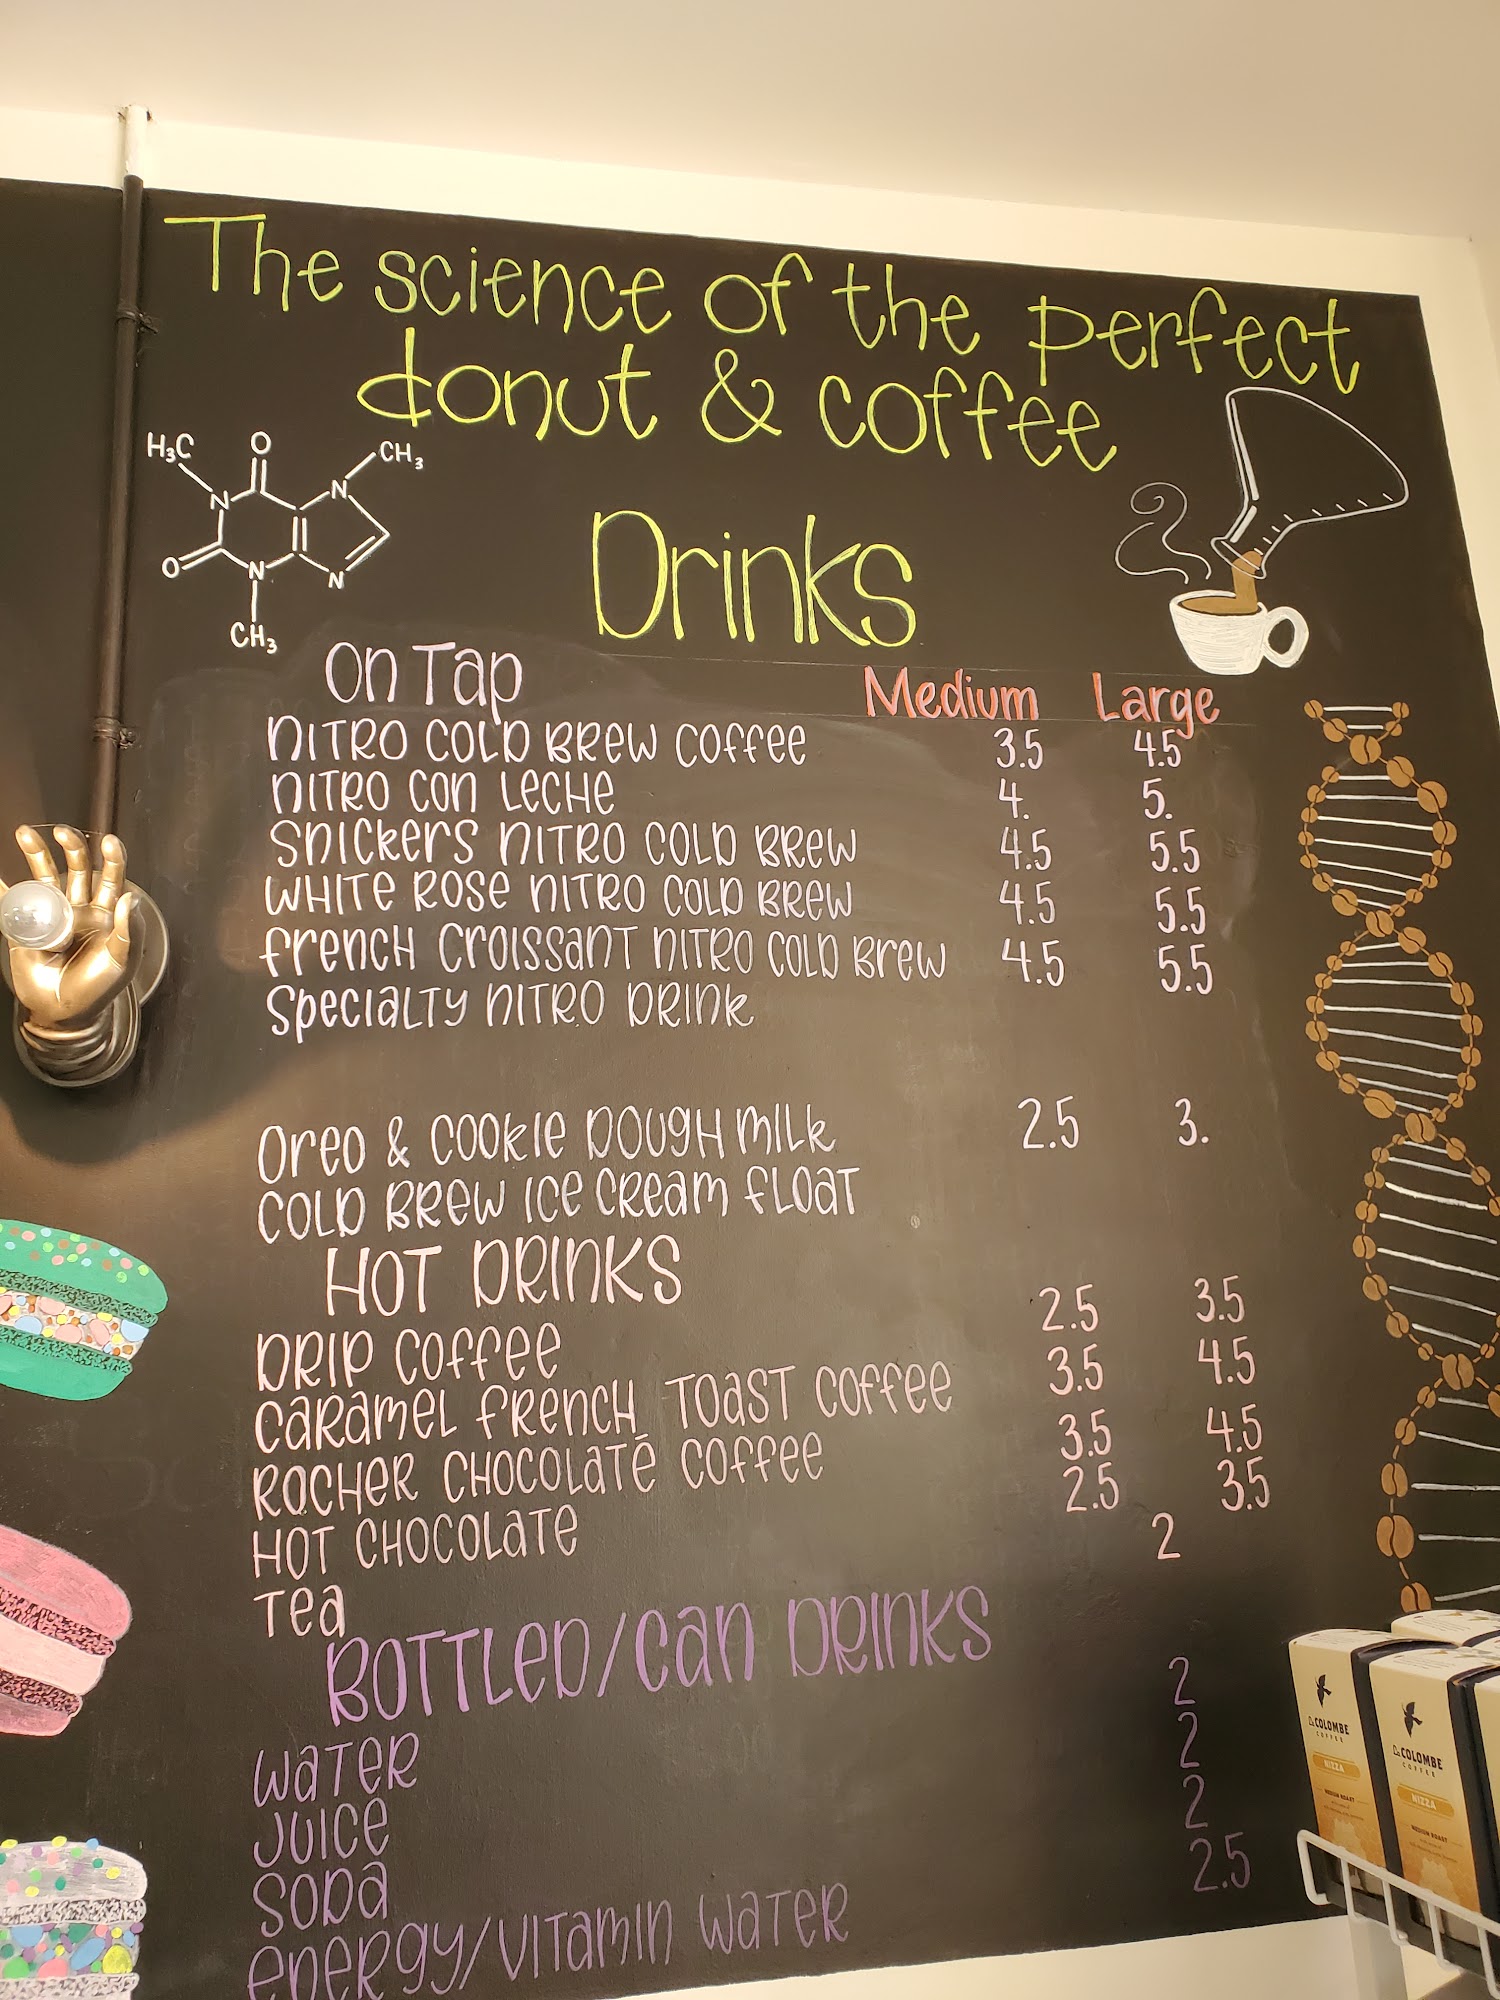 The science of the perfect
donut & coffee
H₃C
O
CH₃
N
N
O
N
N
CH₃
Drinks
On Tap Medium Large
NITRO COLD BREW COFFEE 3.5 4.5
NITRO CON LECHE 4. 5.
SNICKERS NITRO COLD BREW 4.5 5.5
WHITE ROSE NITRO COLD BREW 4.5 5.5
FRENCH CROISSANT NITRO COLD BREW 4.5 5.5
SPECIALTY NITRO DRINK
OREO & COOKIE DOUGH MILK 2.5 3.
COLD BREW ICE CREAM FLOAT
HOT DRINKS
DRIP COFFEE 2.5 3.5
CARAMEL FRENCH TOAST COFFEE 3.5 4.5
ROCHER CHOCOLATE COFFEE 3.5 4.5
HOT CHOCOLATE 2.5 3.5
TEA 2
BOTTLED/CAN DRINKS
WATER 2
JUICE 2
SODA 2
ENERGY/VITAMIN WATER 2.5
LA COLOMBE
COFFEE
NIZZA
MEDIUM ROAST
LA COLOMBE
COFFEE
NIZZA
MEDIUM ROAST